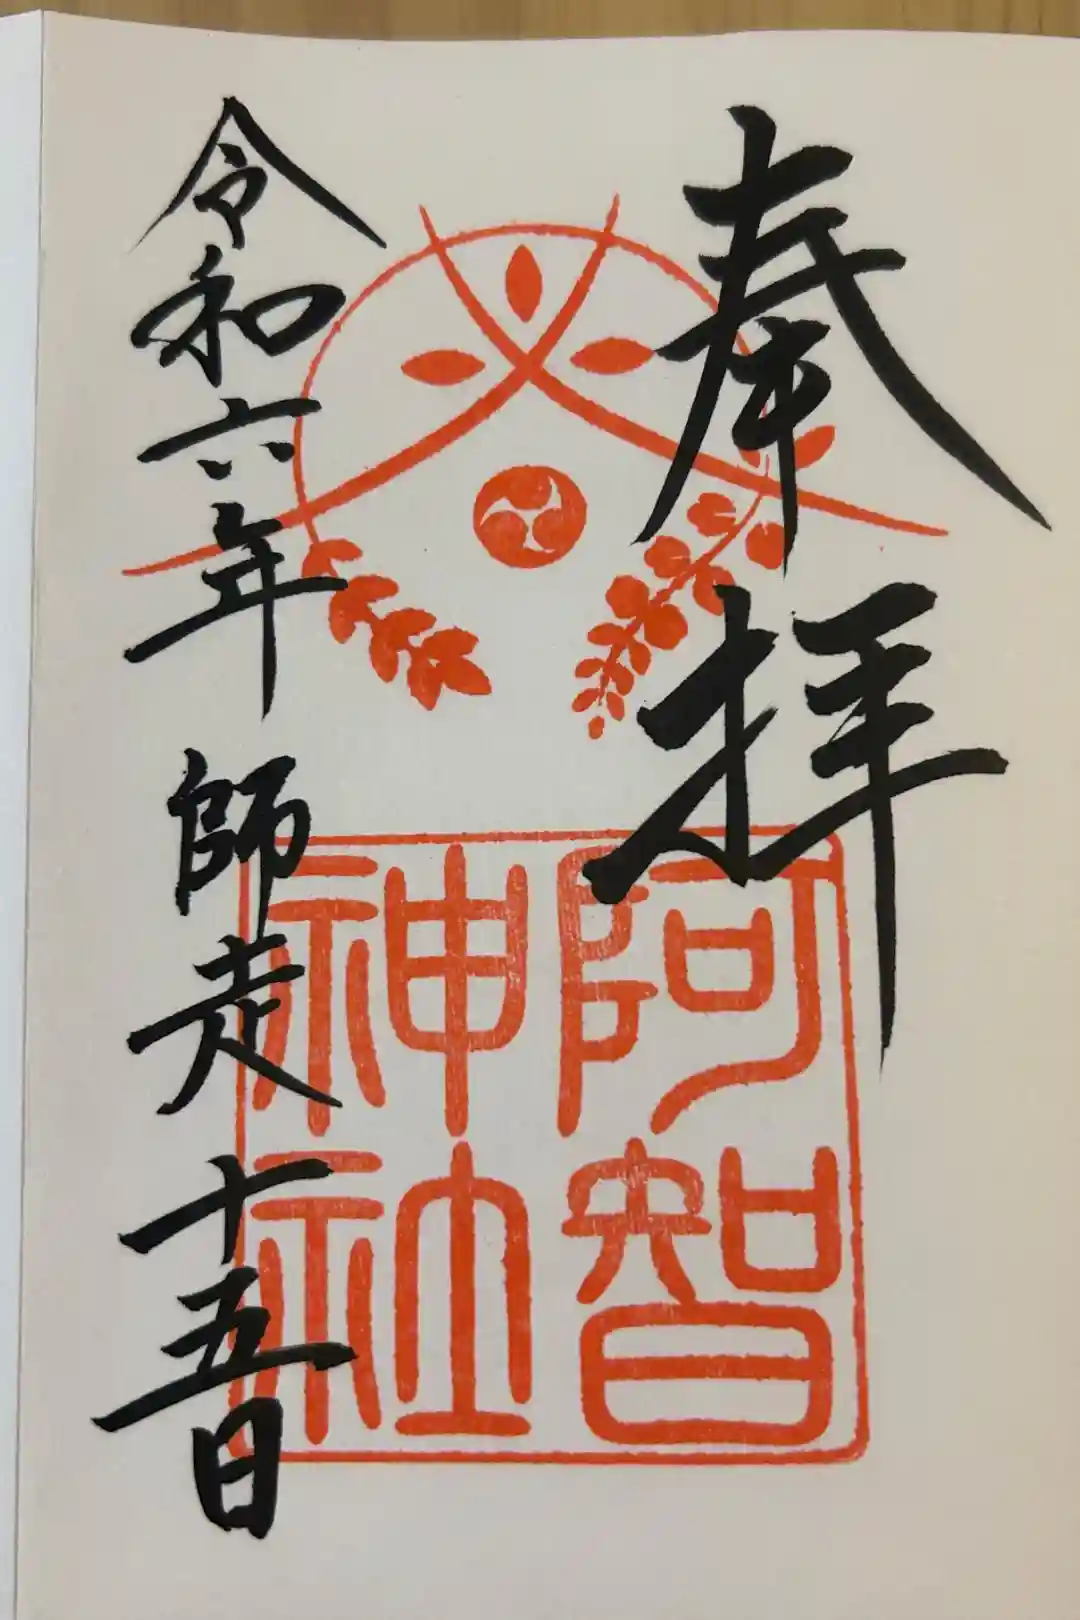 奉拝
阿智神社
令和六年 師走 十五日